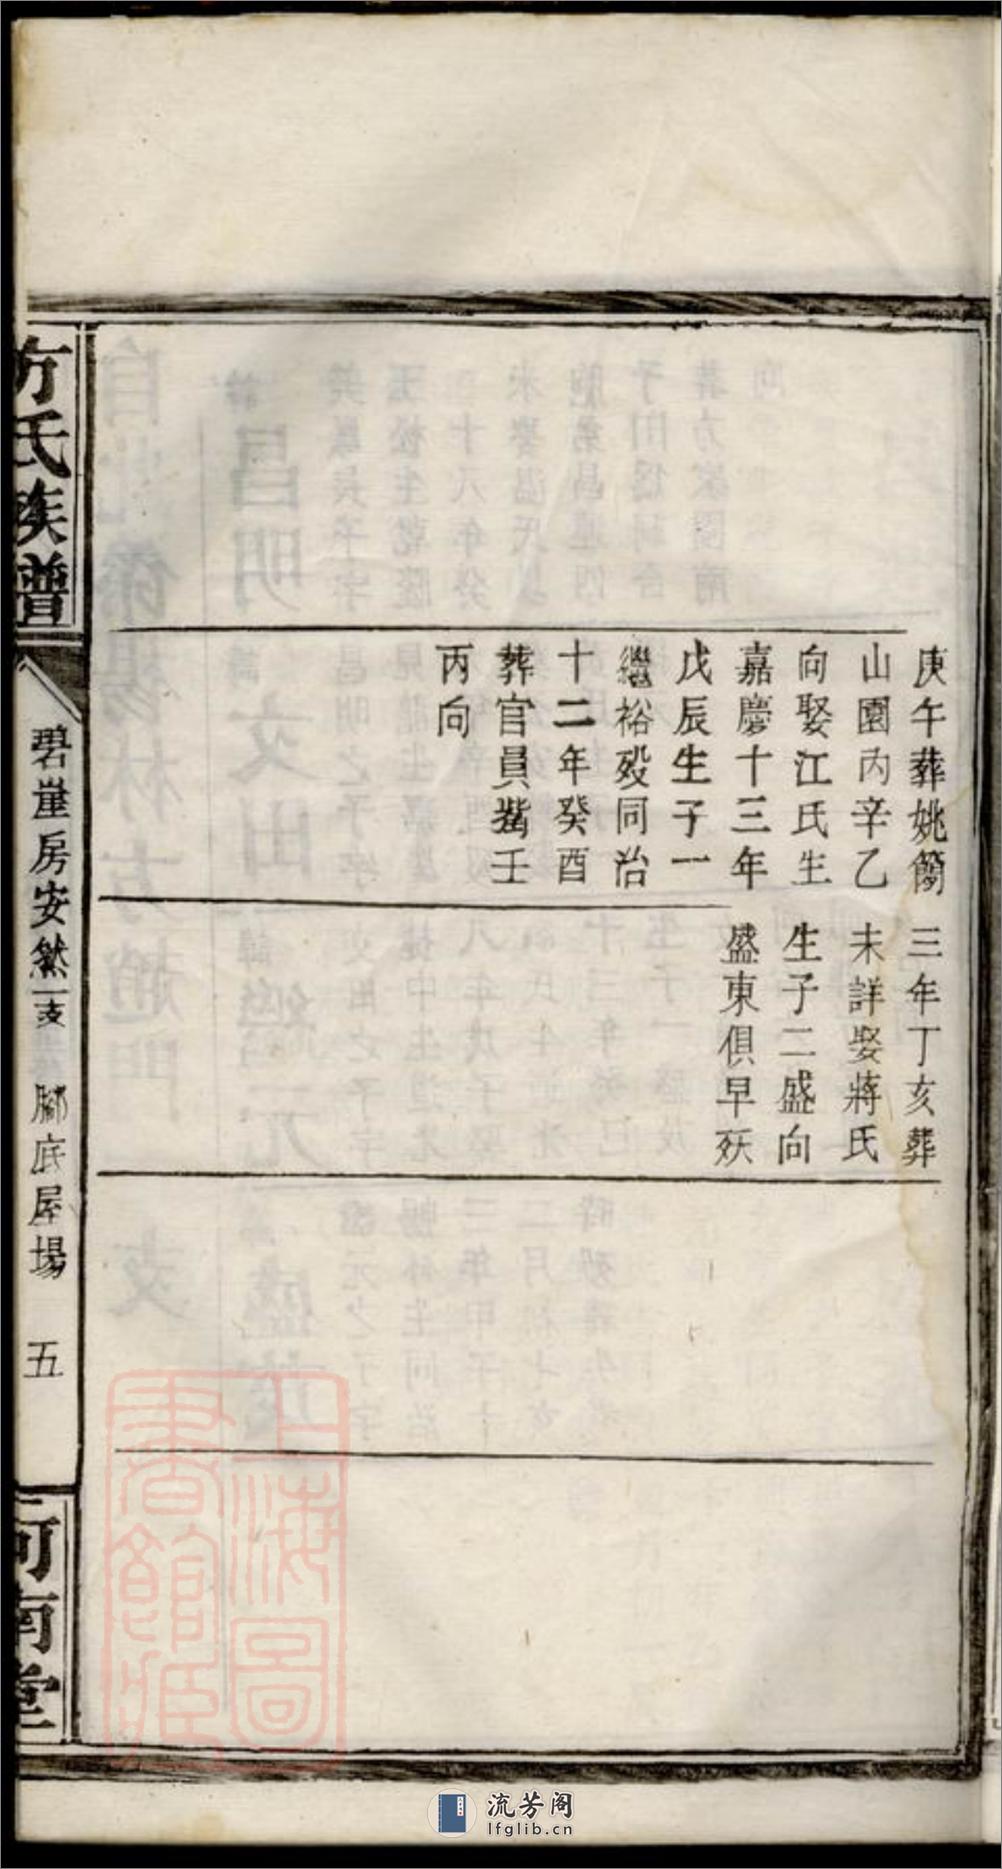 庚午葬姚簡
山園內辛乙
向娶江氏生
嘉慶十三年
戊辰生子一
繼裕殁同治
十二年癸酉
葬官員嘴壬
丙向
三年丁亥葬
未詳娶蔣氏
生子二盛向
盛東俱早殀
方氏族譜
碧崖房安然一支 腳底屋場 五
河南堂
上海圖書館藏
流芳阁
lfglib.cn